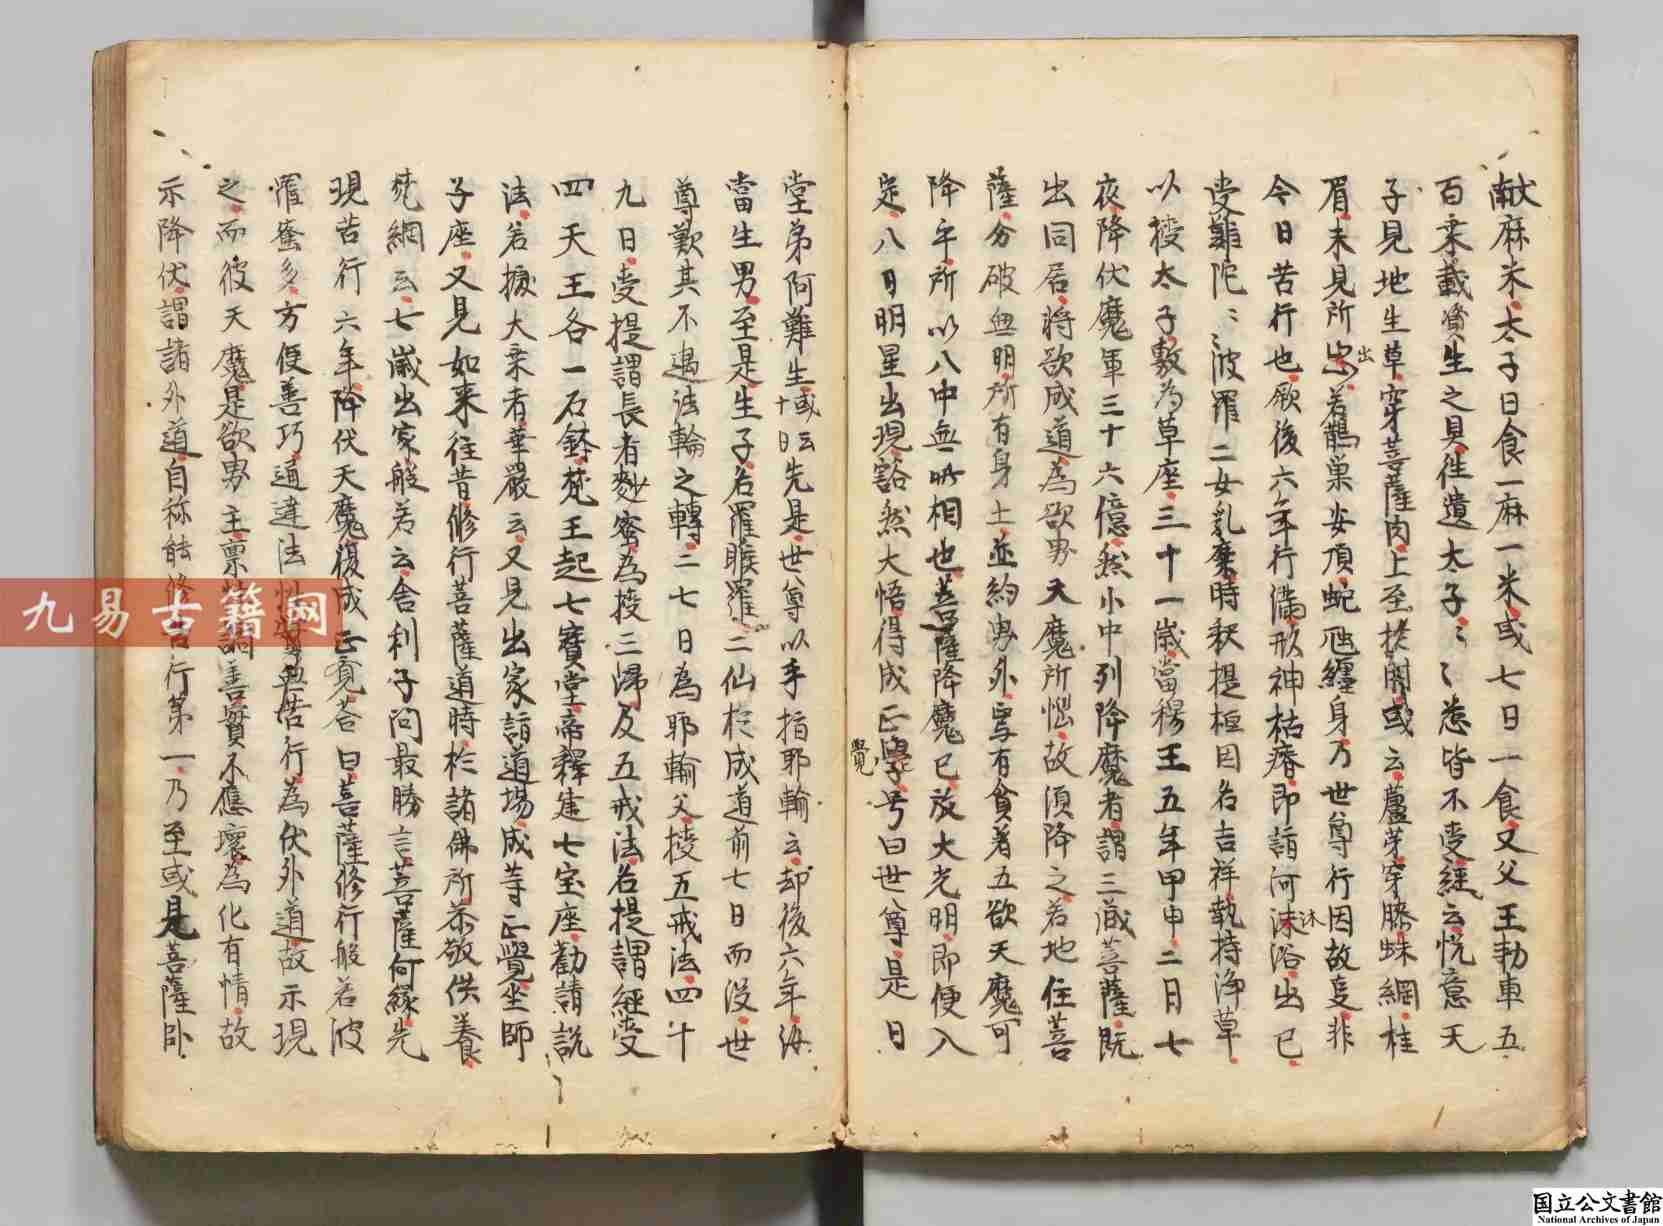 献麻米太子日食一麻一米或七日一食又父王勅車五
百乗載資生之具往遺太子〻〻忩皆不受経云悦意天
子見地生草穿菩薩肉上至於肘或云蘆芽穿膝蛛網桂
眉未見所出若鵲巣安頂蛇虺纏身乃世尊行因故爰非
出
今日苦行也厥後六年行満形神枯瘠即詣河沐浴出已
沐
受難陀〻波羅二女乳麋時釈提桓因名吉祥執持浄草
以授太子敷為草座三十一歳當穆王五年甲申二月七
夜降伏魔軍三十六億然小中列降魔者謂三蔵菩薩既
出同居将欲成道為欲界天魔所惱故須降之若地住菩
薩分破無明所有身土並約界外寧有貪著五欲天魔可
降乎所以八中無此相也菩薩降魔已放大光明即便入
定八日明星出現豁然大悟得成正覺号曰世尊是日
覺
堂弟阿難生或云十日先是世尊以手指耶輸云却後六年汝
當生男至是生子名羅睺羅二仙於成道前七日而没世
尊歎其不遇法輪之轉二七日為耶輸父授五戒法四十
九日受提謂長者麨蜜為授三帰及五戒法名提謂経受
四天王各一石鉢梵王起七寳堂帝釋建七宝座勸請説
法若據大乗者華嚴云又見出家詣道場成等正覺坐師
子座又見如来往昔修行菩薩道時於諸佛所恭敬供養
梵網云七歳出家般若云舎利子问最勝言菩薩何縁先
現苦行六年降伏天魔復成正覚荅曰菩薩修行般若波
羅蜜多方便善巧通達法性實無苦行為伏外道故示現
之而彼天魔是欲界主禀性調善實不應壞為化有情故
示降伏謂諸外道自称能修苦行第一乃至或是菩薩卧
九易古籍网
国立公文書館
National Archives of Japan